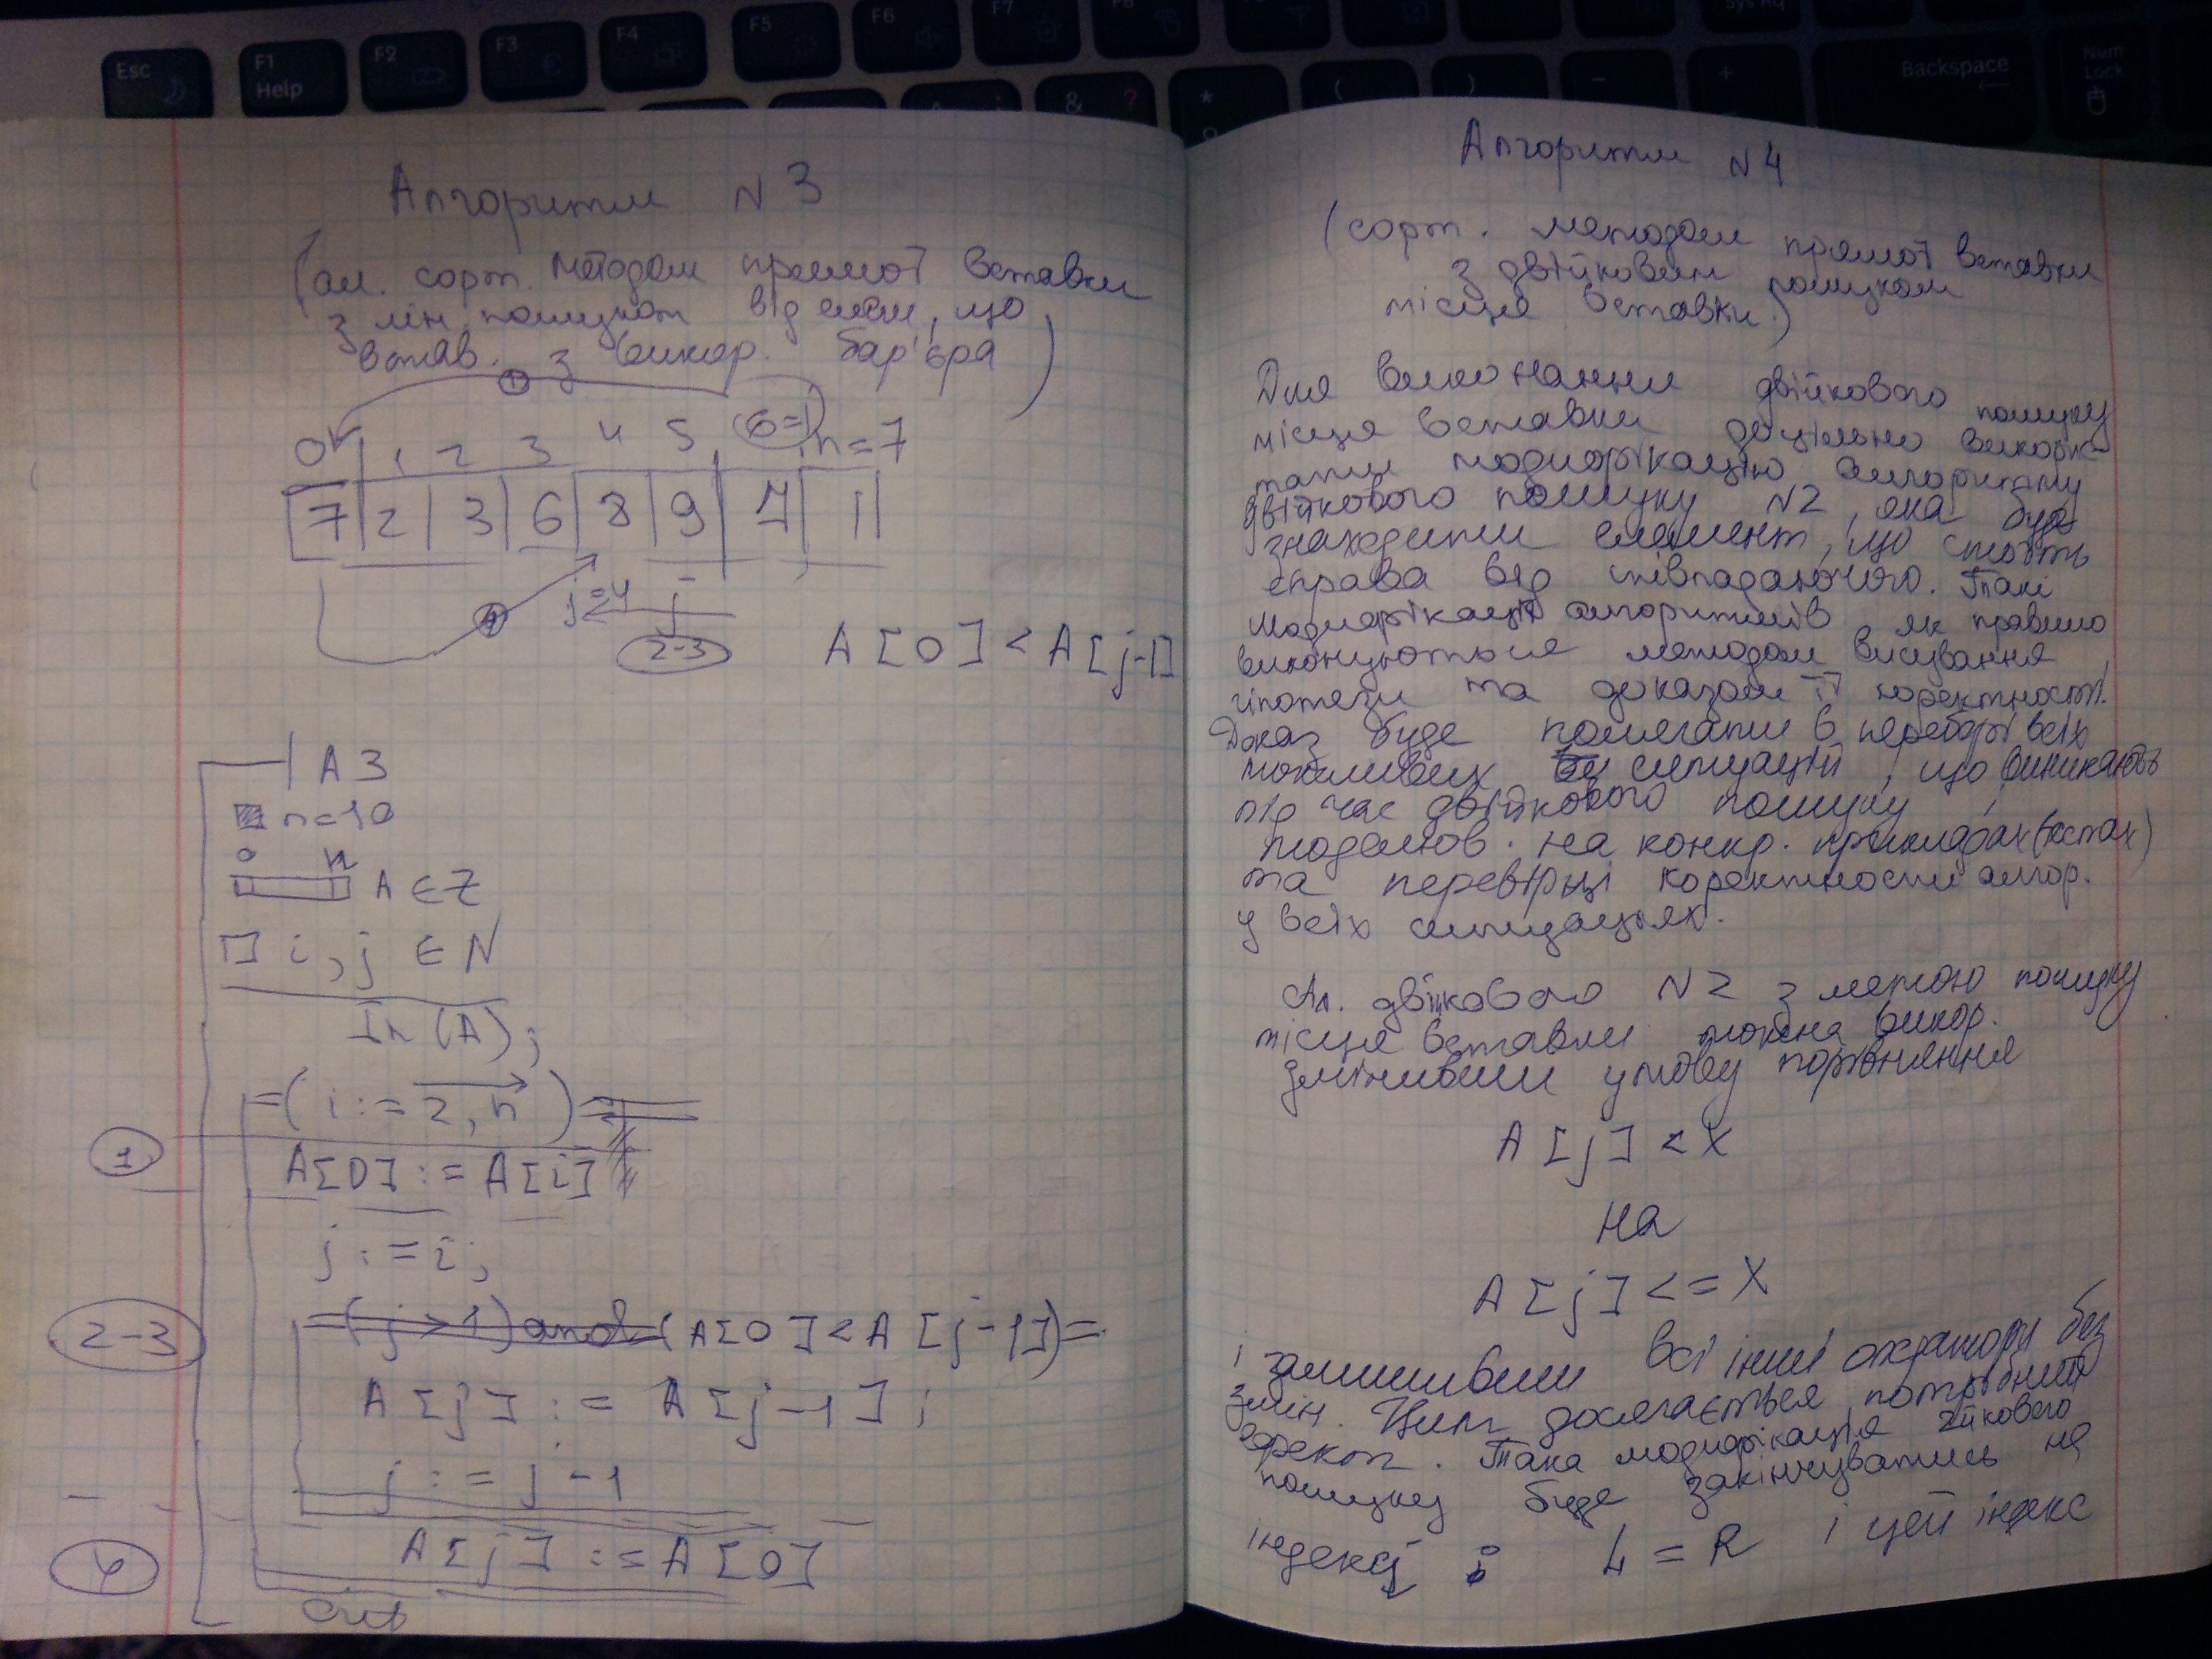 Esc
F1
Help
F2
F3
F4
F5
F6
F7
F8
Sys Rq
Backspace
Num
Lock
Алгоритм N 3
(ал. сорт. методом прямої вставки
з лін. пошуком від елем, що
встав. з викор. бар'єра)
1
0 1 2 3 4 5 6=i n=7
7 2 3 6 8 9 7 1
j=4 j
4
2-3
A[0] < A[j-1]
A3
n=10
0 n
A ∈ Z
i, j ∈ N
In(A);
(i:=2,n)
1
A[0] := A[i]
j := i;
2-3
(j>1) and (A[0] < A[j-1])
A[j] := A[j-1];
j := j-1
4
A[j] := A[0]
Out
Алгоритм N4
(сорт. методом прямої вставки
з двійковим пошуком
місця вставки)
Для виконання двійкового пошуку
місця вставки доцільно викорис-
тати модифікацію алгоритму
двійкового пошуку N2, яка буде
знаходити елемент, що стоїть
справа від співпадаючого. Такі
модифікації алгоритмів, як правило
виконуються методом висування
гіпотези та доказом її коректності.
Доказ буде полягати в переборі всіх
можливих ситуацій, що виникають
під час двійкового пошуку,
моделюв. на конкр. прикладах (тестах)
та перевірці коректности алгор.
у всіх ситуаціях.
Ал. двійкового N2 з метою пошуку
місця вставки можна викор.
змінивши умову порівняння
A[j] < X
на
A[j] <= X
і залишивши всі інші оператори без
змін. Цим досягається потрібний
ефект. Така модифікація 2йкового
пошуку буде закінчуватись на
індексі L = R і цей індекс